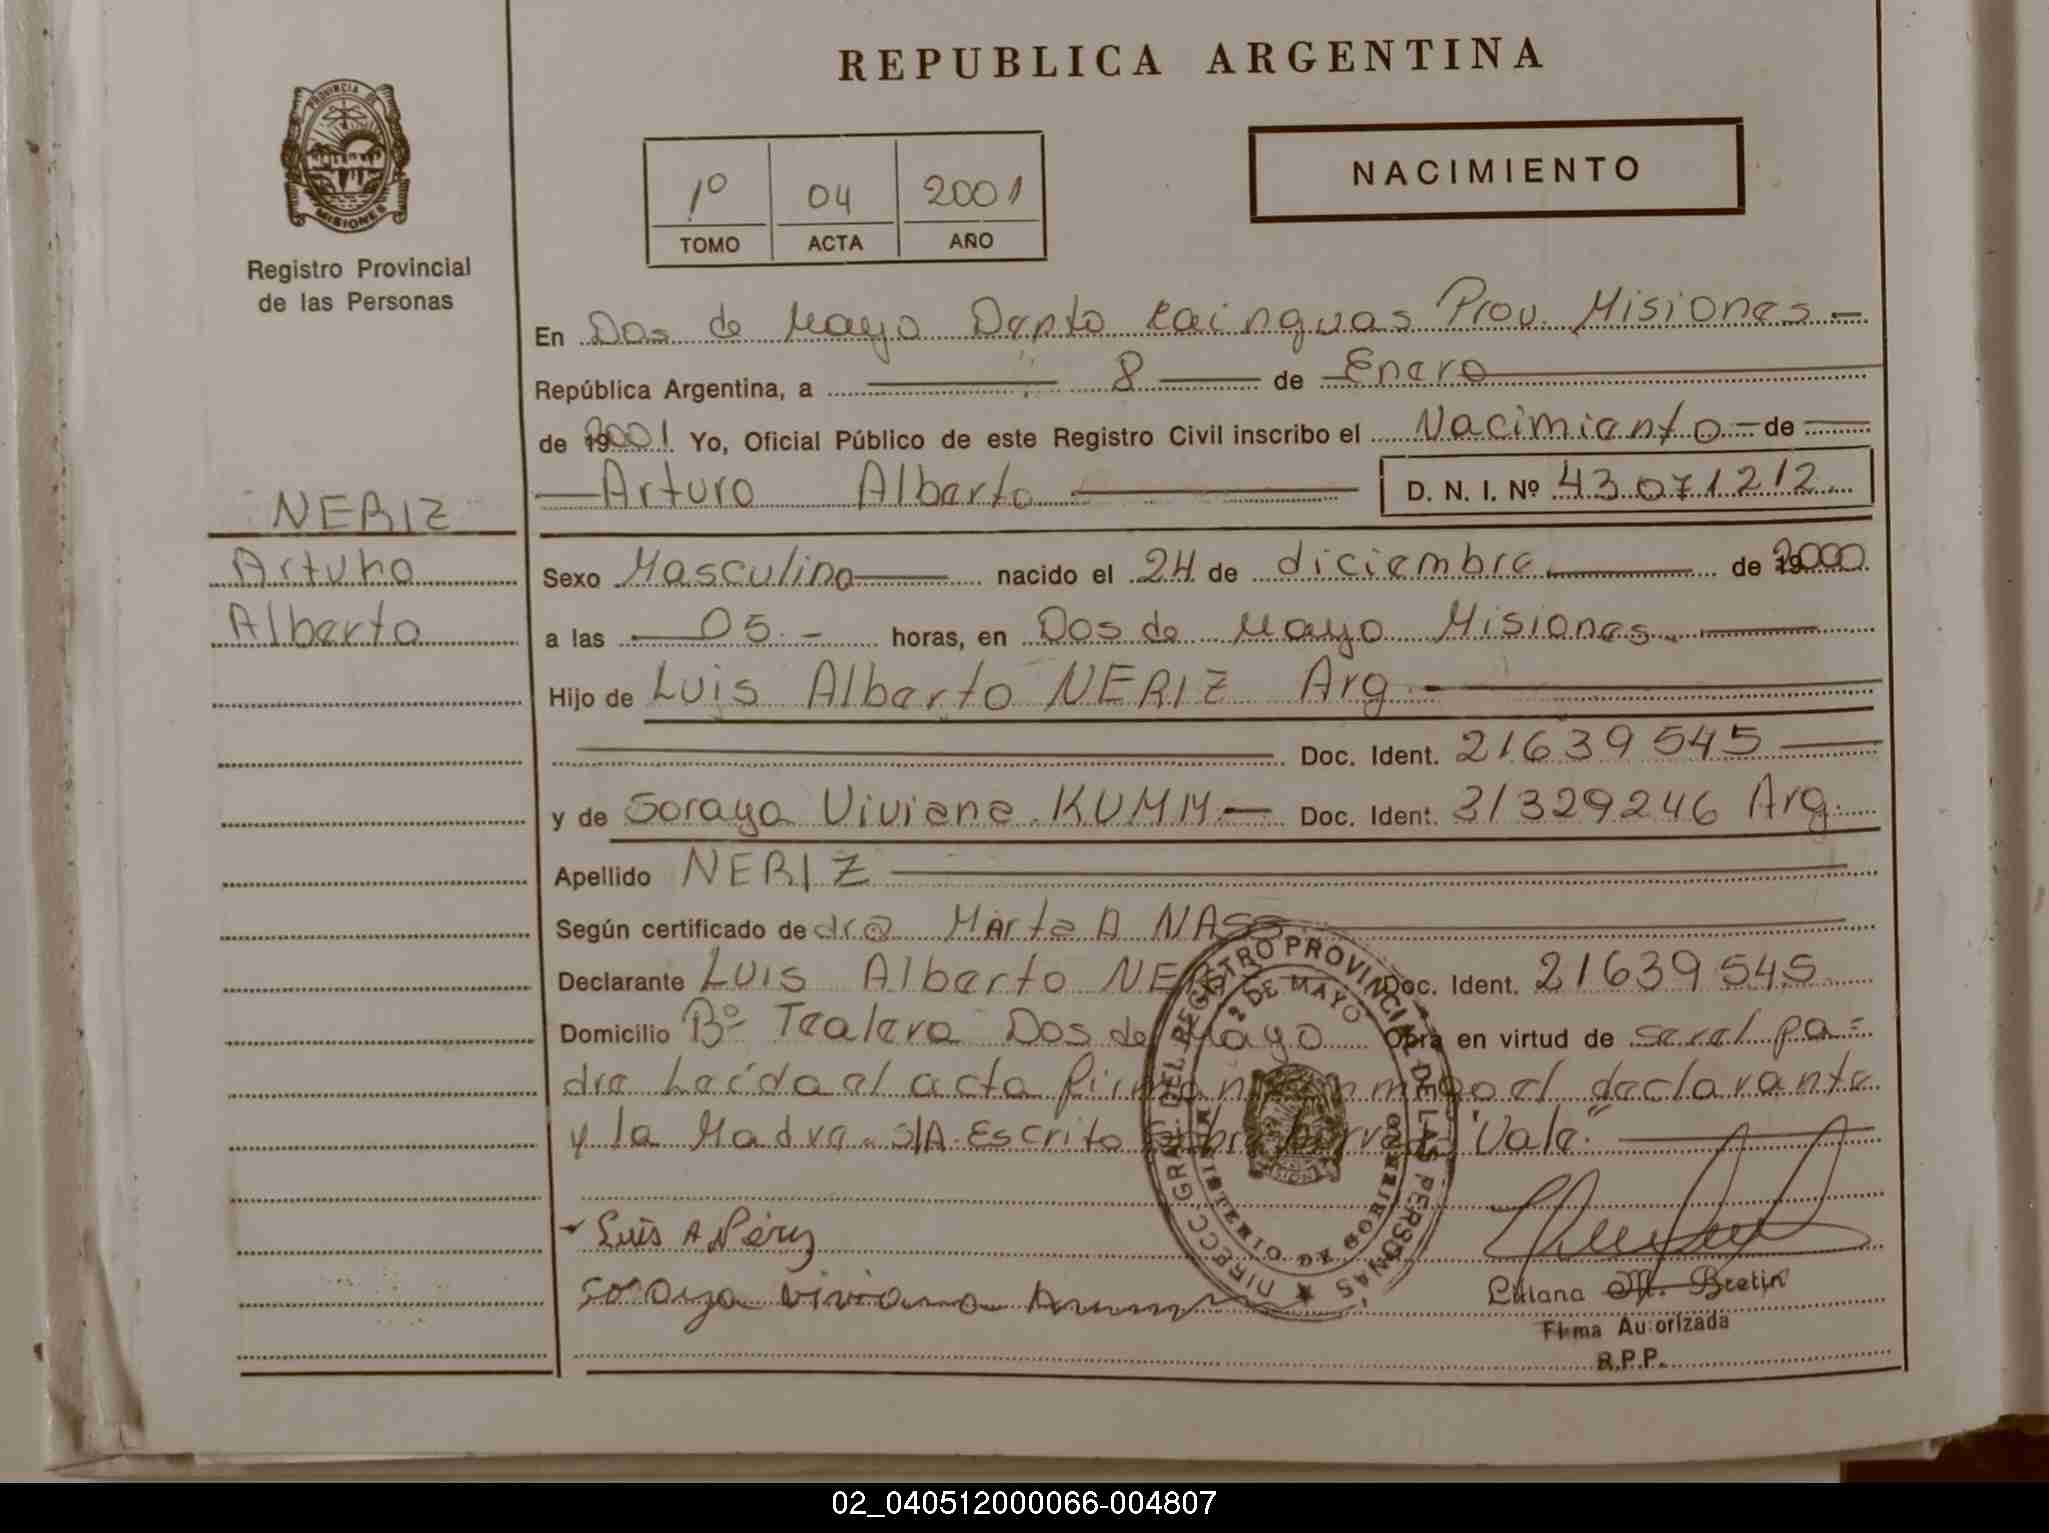 REPUBLICA ARGENTINA
PROVINCIA DE
MISIONES
Registro Provincial
de las Personas
1º 04 2001
TOMO ACTA AÑO
NACIMIENTO
En Dos de Mayo Depto Kainguas Prov. Misiones.-
República Argentina, a 8 de Enero
de 2001 Yo, Oficial Público de este Registro Civil inscribo el Nacimiento - de
Arturo Alberto D. N. I. Nº 43.071212.
NERIZ
Arturo
Alberto
Sexo Masculino nacido el 24 de diciembre de 2000
a las 05.- horas, en Dos de Mayo Misiones.
Hijo de Luis Alberto NERIZ Arg.-
Doc. Ident. 21639545
y de Soraya Viviana KUMM.- Doc. Ident. 31329246 Arg.
Apellido NERIZ
Según certificado de dra Marta A NASS
Declarante Luis Alberto Doc. Ident. 21639545
Domicilio Bº Tealera Dos de Mayo Obra en virtud de ser el pa=
dre Leída el acta firman conmigo el declarante
y la Madre. S/A. Escrito sobre borrado "Vale."
DIRECC. GRAL. DEL REGISTRO PROVINCIAL DE LAS PERSONAS
2 DE MAYO
MISIONES
Luis A Nériz
Soraya Viviana
Liliana M. Bretin
Firma Autorizada
R.P.P.
02_040512000066-004807